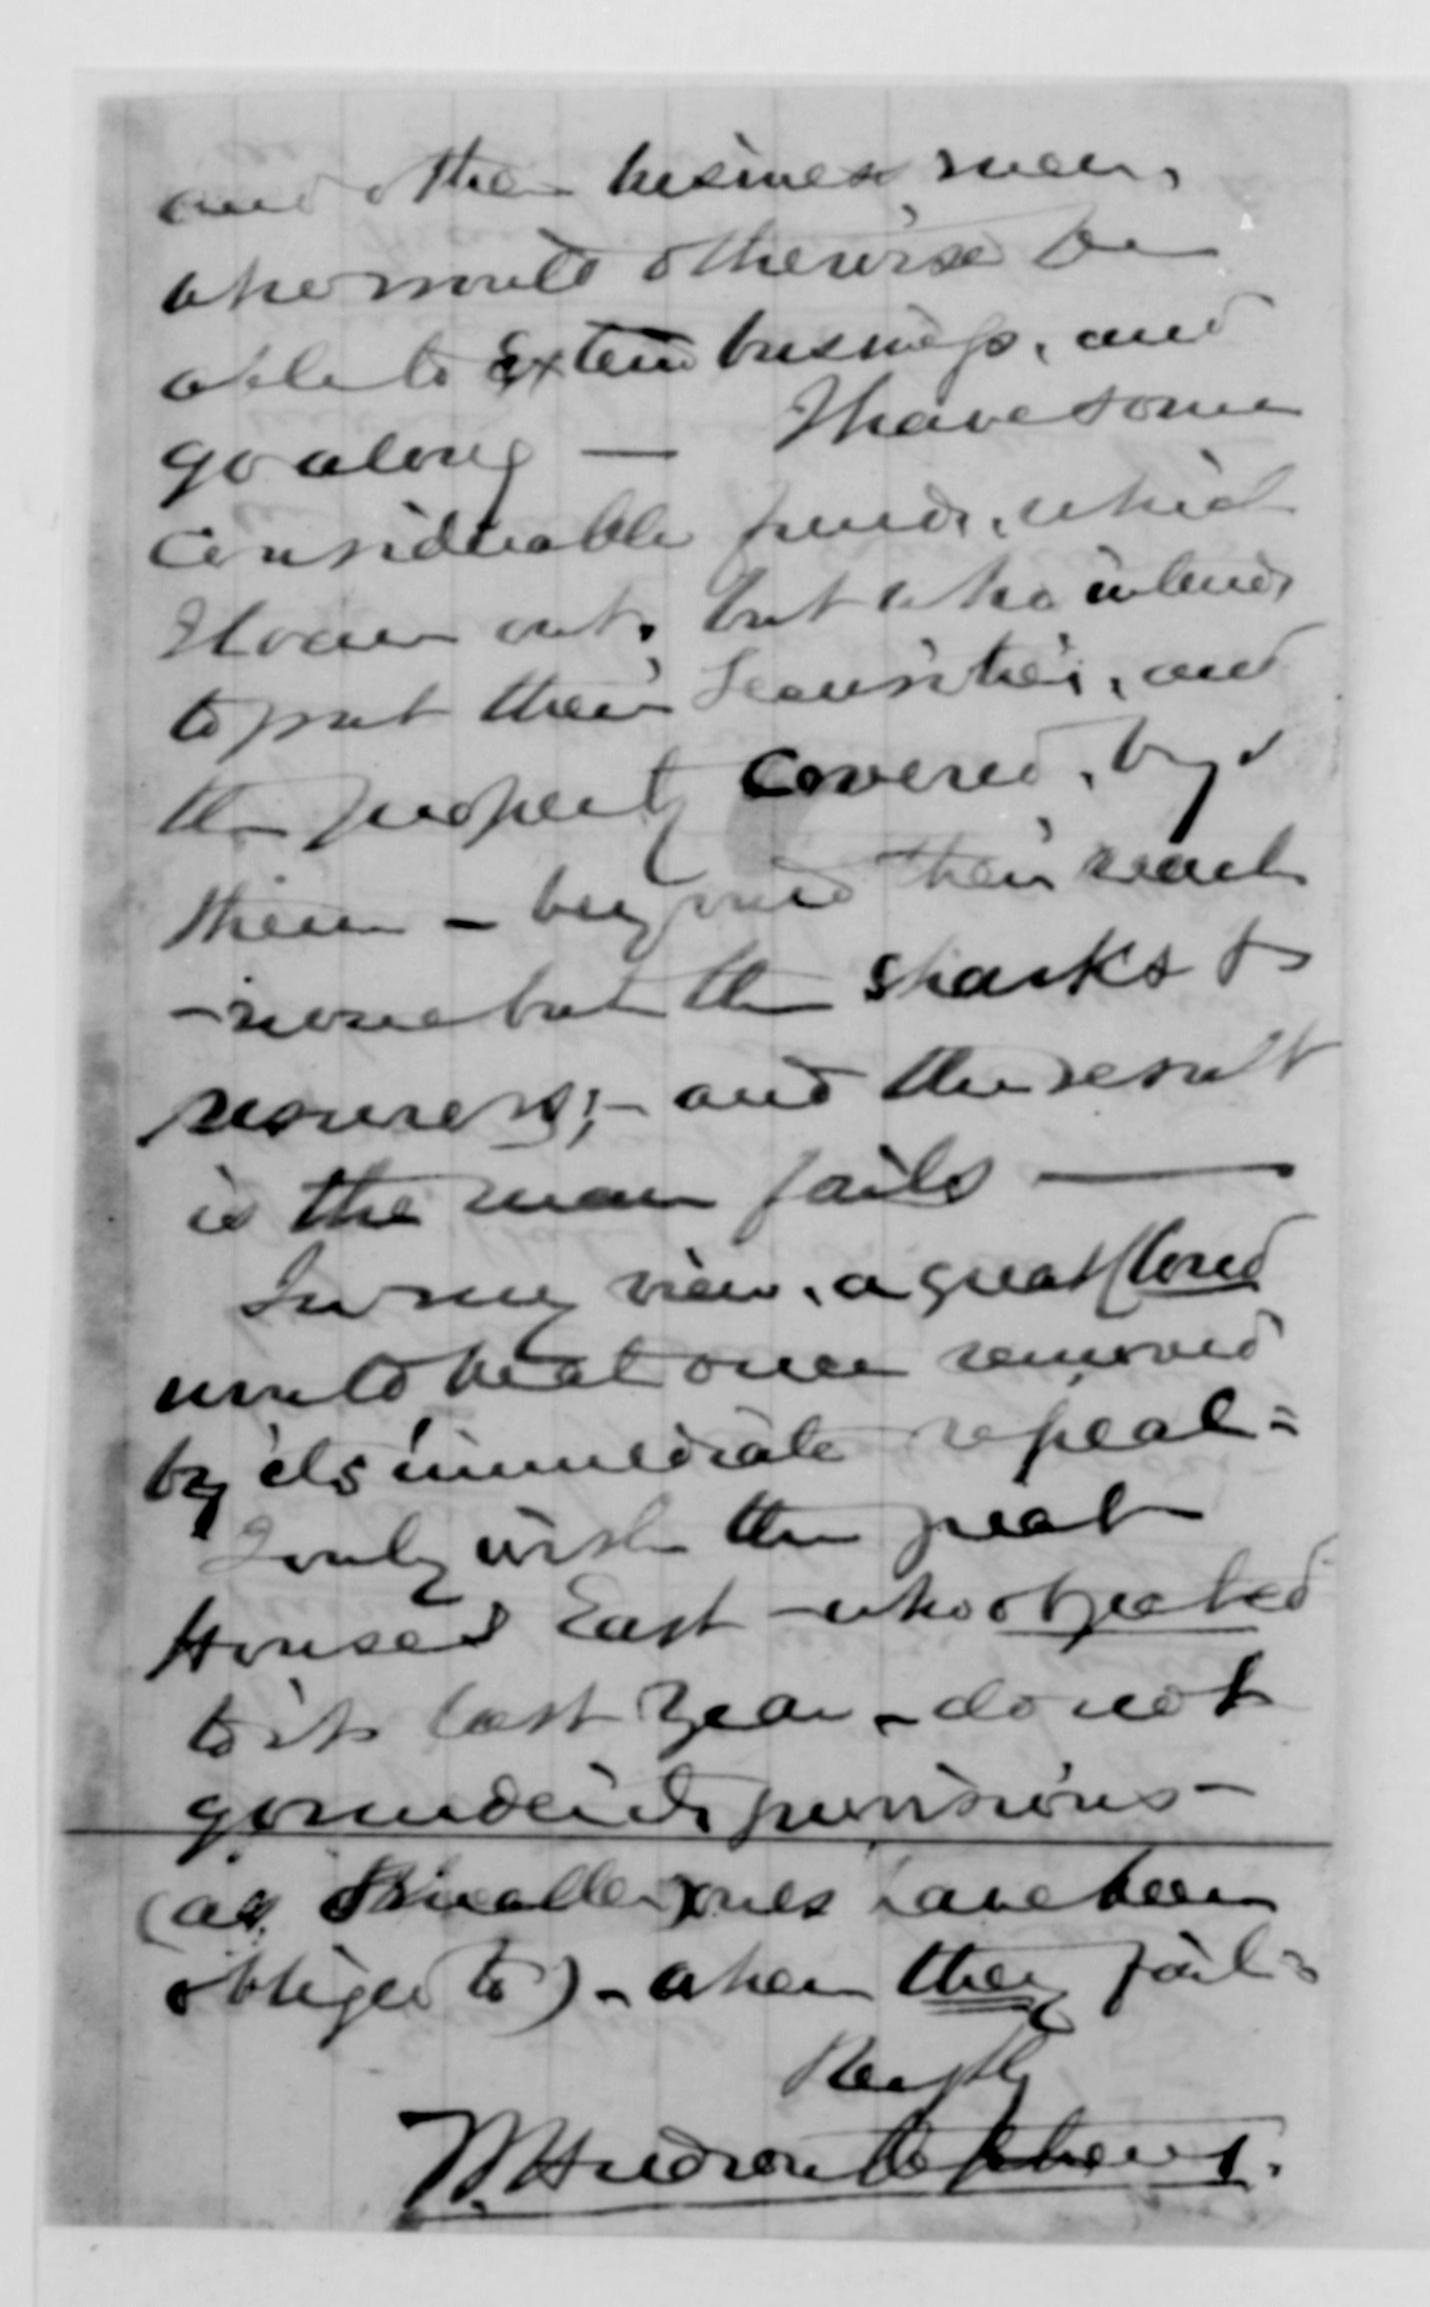 and other business men,
who would otherwise be
able to Extend business, and
go along — I have some
Considerable funds, which
I loan out, but who intends
to put their Securities, and
the property covered, by
them — beyond their reach
— none but the sharks &
usurers; — and the result
is the man fails —
In my view, a great load
would be at once removed
by its immediate repeal =
I only wish the great
Houses East — who objected
to it last year — do not
go under its provisions —
(as smaller ones have been
obliged to) — when they fail =
Respfly
M Hudson Stephens.